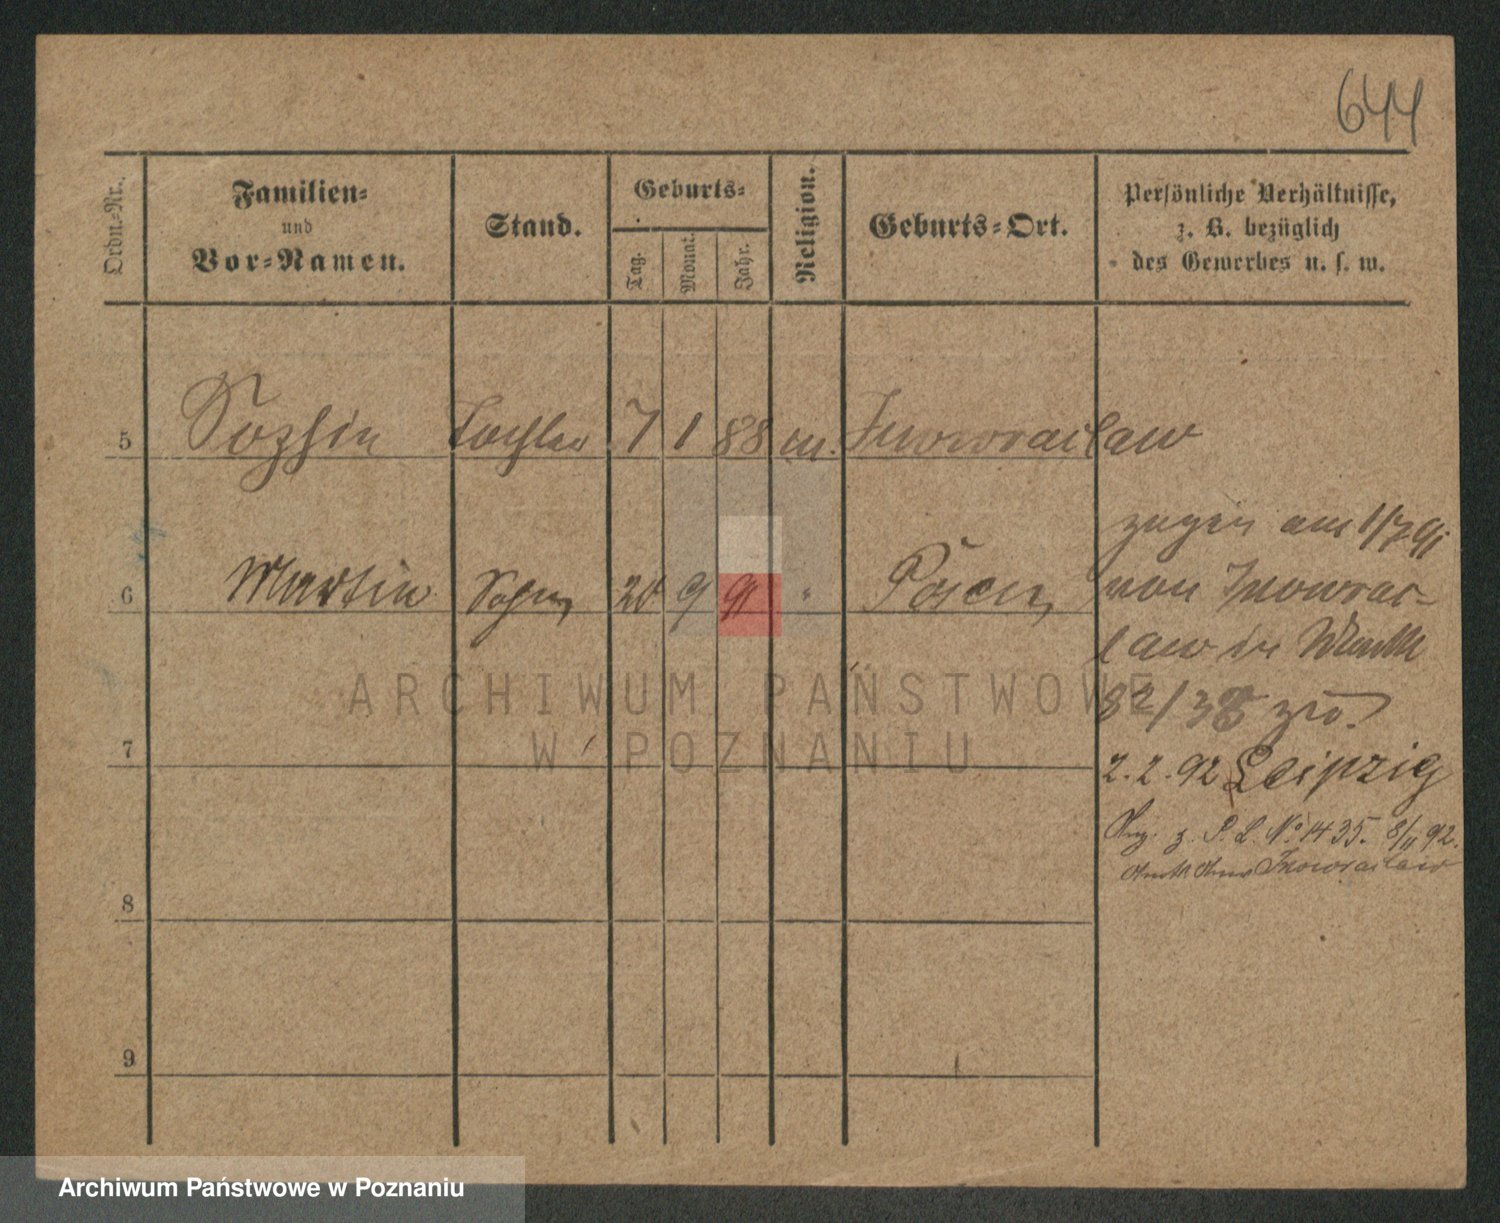 644
Ordn.=Nr.
Familien=
und
Vor=Namen.
Stand.
Geburts=
Tag.
Monat.
Jahr.
Religion.
Geburts=Ort.
Persönliche Verhältnisse,
z. B. bezüglich
des Gewerbes u. s. w.
5 Sophie Tochter 7 1 88 m. Inowraclaw
6 Martin Sohn 20 9 91 " Posen
zugez. am 1/7 91
von Inowrac-
law in
82/38
7
2.2.92 Leipzig
z. P. B. No 1435. 8/II 92.
Inowraclaw
8
9
ARCHIWUM PAŃSTWOWE
W POZNANIU
Archiwum Państwowe w Poznaniu